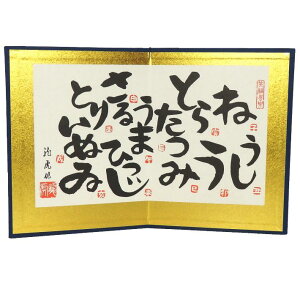 ね
うし
とら
う
たつみ
うま
ひつじ
さる
とり
いぬゐ